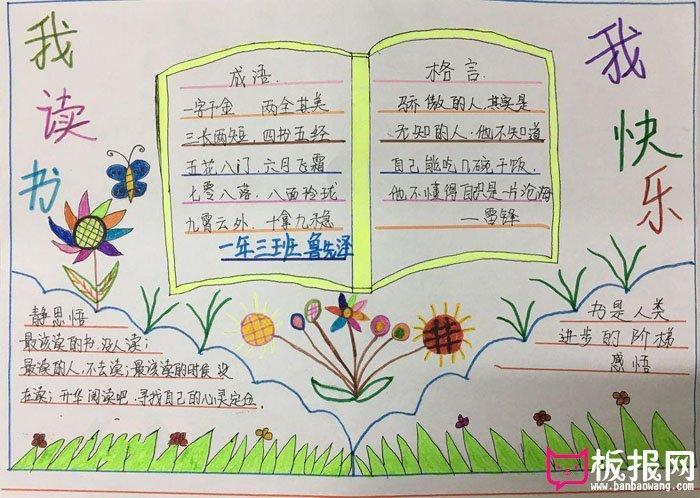 我读书
我快乐
成语.
一字千金 两全其美
三长两短,四书五经
五花八门,六月飞霜
七零八落,八面玲珑
九霄云外,十拿九稳
一年三班 鲁先泽
格言
骄傲的人,其实是
无知的人,他不知道
自己能吃几碗干饭,
他不懂得 是一片沧海
—雷锋
静思悟
最该读的书,没人读;
最读的人,不去读;最该读的时候 没
在读;开华阅读吧,寻找自己的心灵定位.
书是人类
进步的阶梯
感悟
板报网
www.banbaowang.com